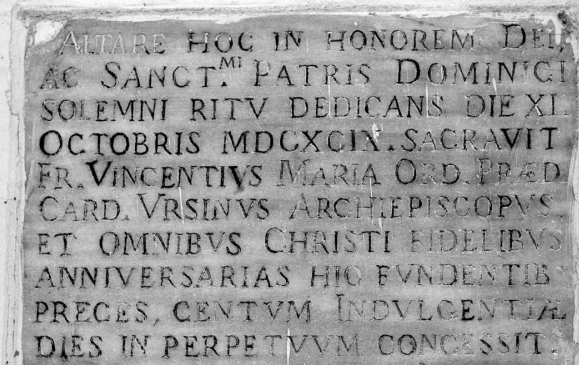 ALTARE HOC IN HONOREM DEI,
AC SANCT.MI PATRIS DOMINICI
SOLEMNI RITV DEDICANS DIE XI.
OCTOBRIS MDCXCIX. SACRAVIT
FR. VINCENTIVS MARIA ORD. PRÆD.
CARD. VRSINVS ARCHIEPISCOPVS.
ET OMNIBVS CHRISTI FIDELIBVS
ANNIVERSARIAS HIC FVNDENTIB:
PRECES, CENTVM INDVLGENTIÆ
DIES IN PERPETVVM CONCESSIT.